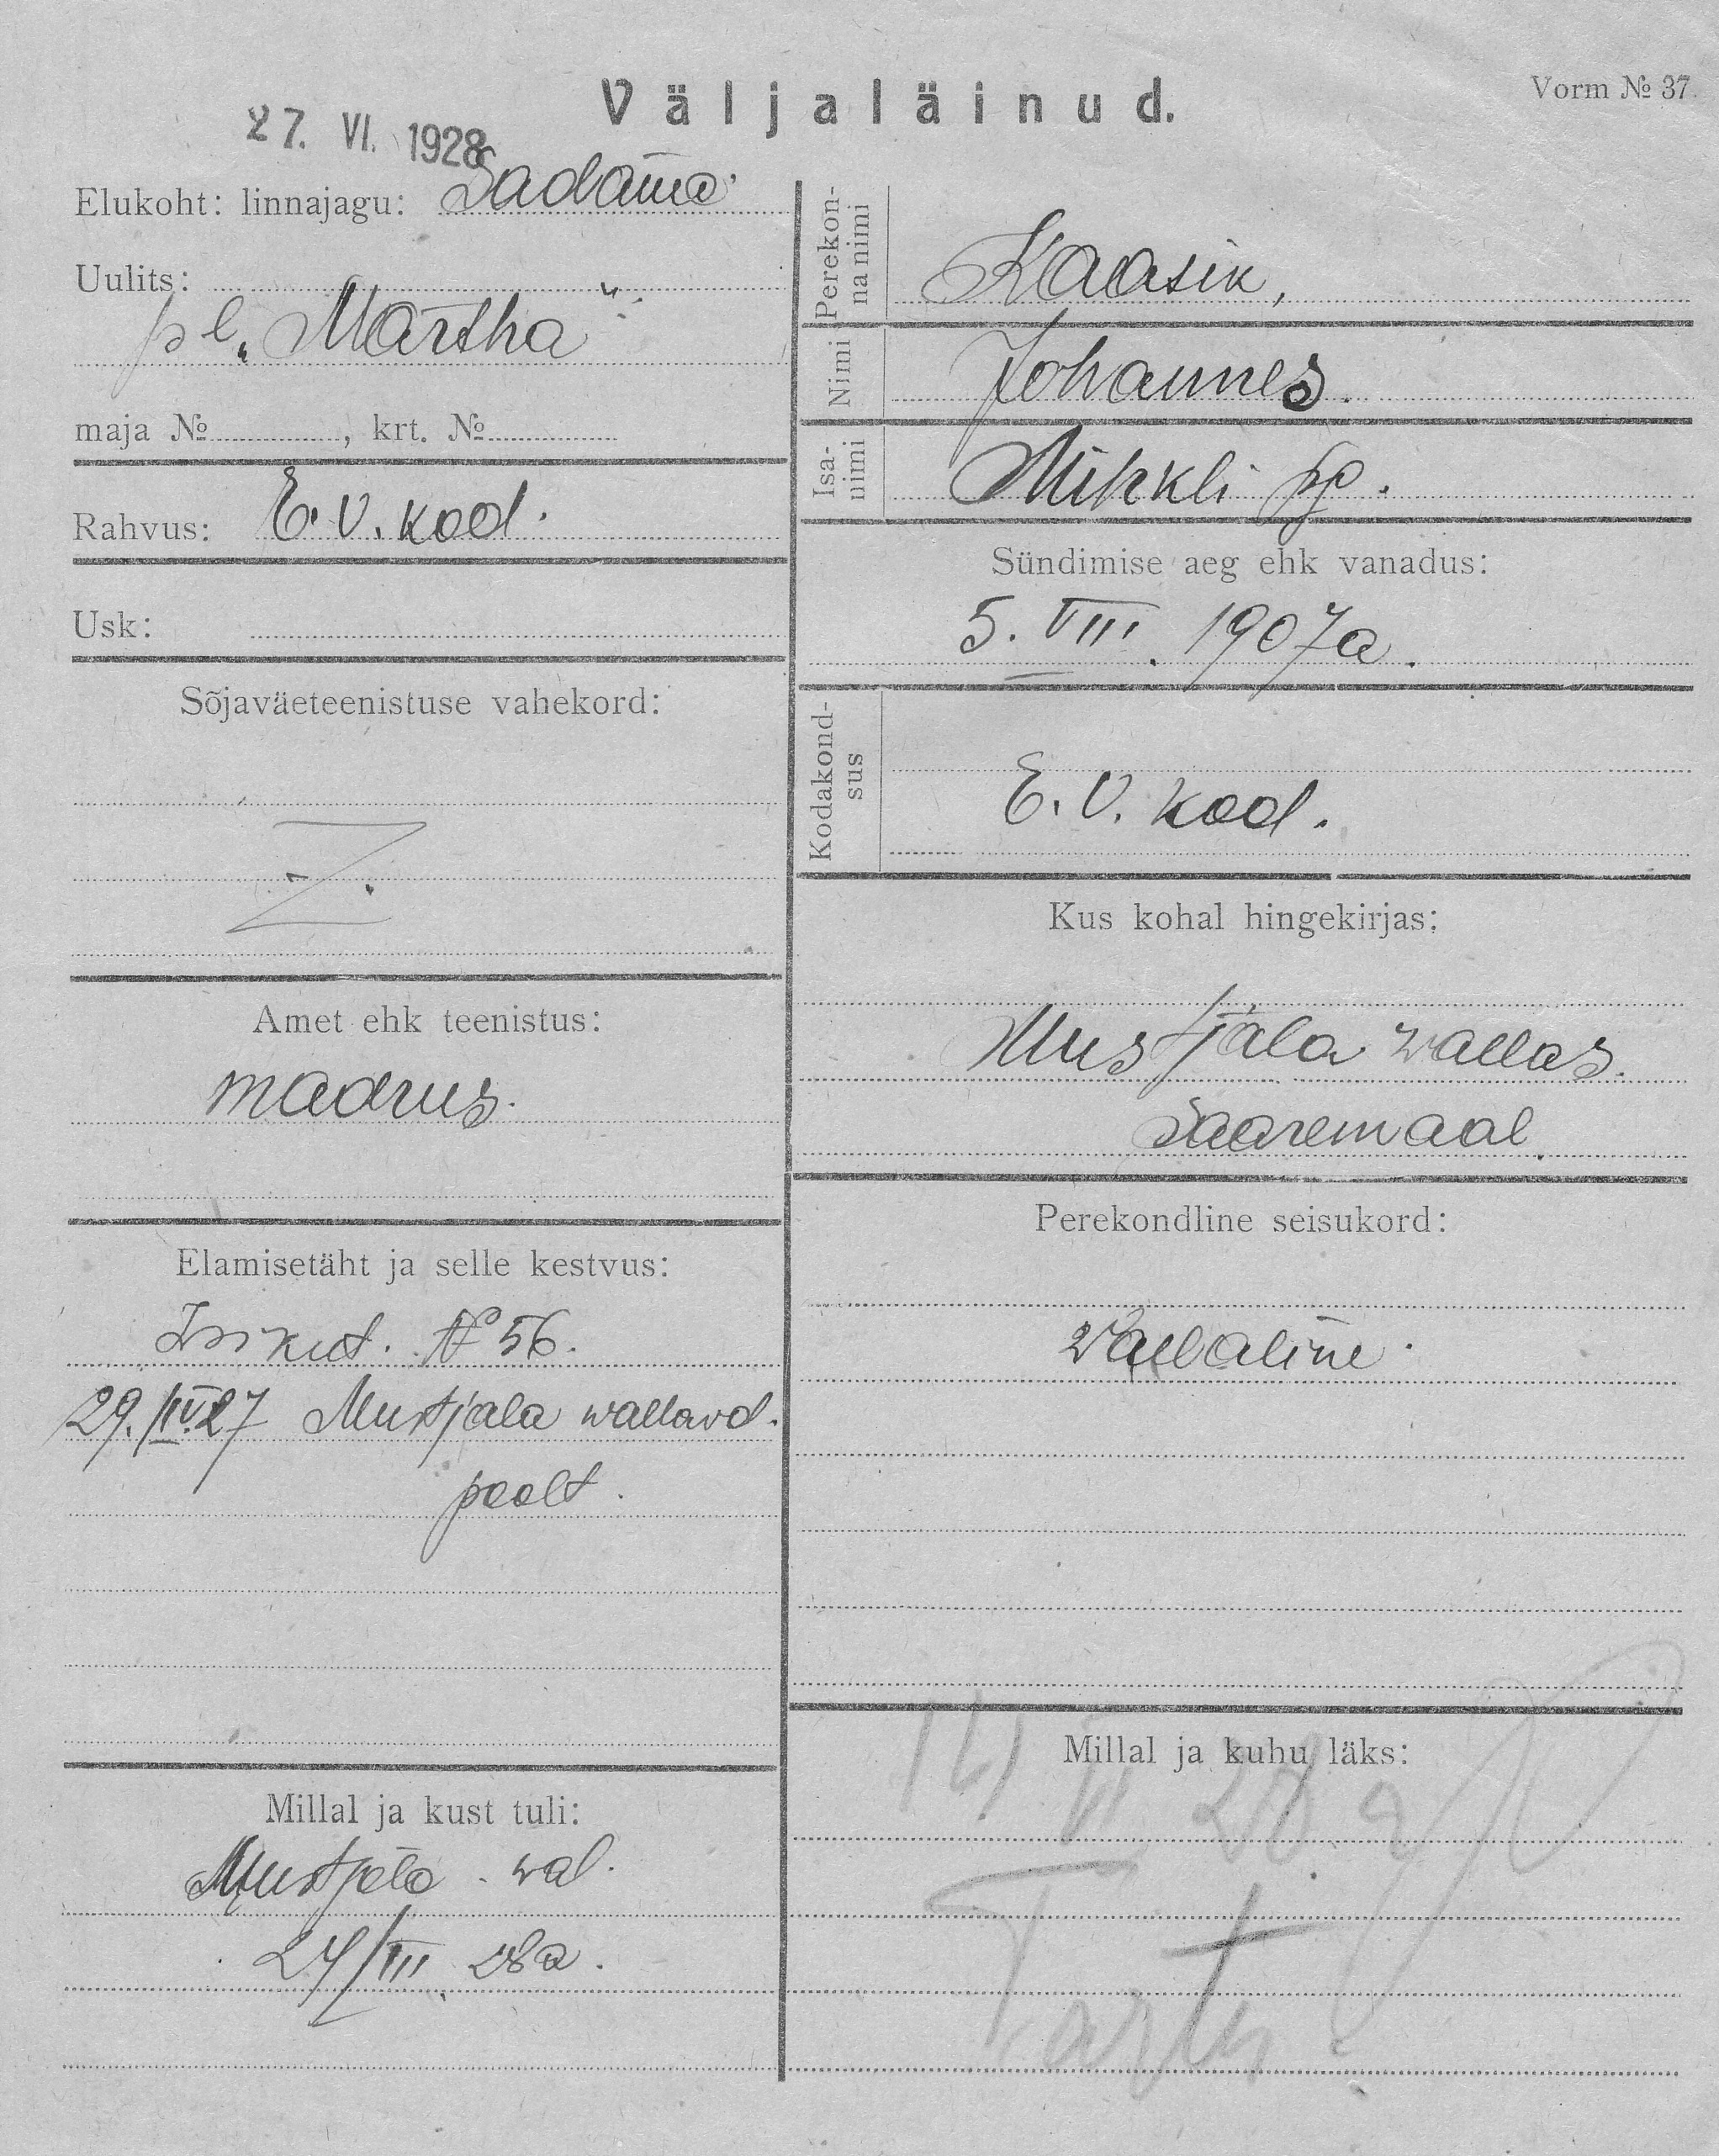 Väljaläinud.
Vorm № 37.
27. VI. 1928
Elukoht: linnajagu: Sadama.
Uulits:
pl. „Martha“.
maja № , krt. №
Rahvus: E.V. kod.
Usk:
Sõjaväeteenistuse vahekord:
Amet ehk teenistus:
madrus.
Elamisetäht ja selle kestvus:
Isikut. № 56.
29./IV.27 Mustjala wallavd.
poolt.
Millal ja kust tuli:
Mustjala wal.
24/III 28a.
Perekon-
na nimi
Kaasik,
Nimi
Johannes.
Isa-
nimi
Mihkli pg.
Sündimise aeg ehk vanadus:
5. VIII. 1907a.
Kodakond-
sus
E.V. kod.
Kus kohal hingekirjas:
Mustjala wallas.
Saaremaal.
Perekondline seisukord:
Wallaline.
Millal ja kuhu läks:
14 VI 28 a